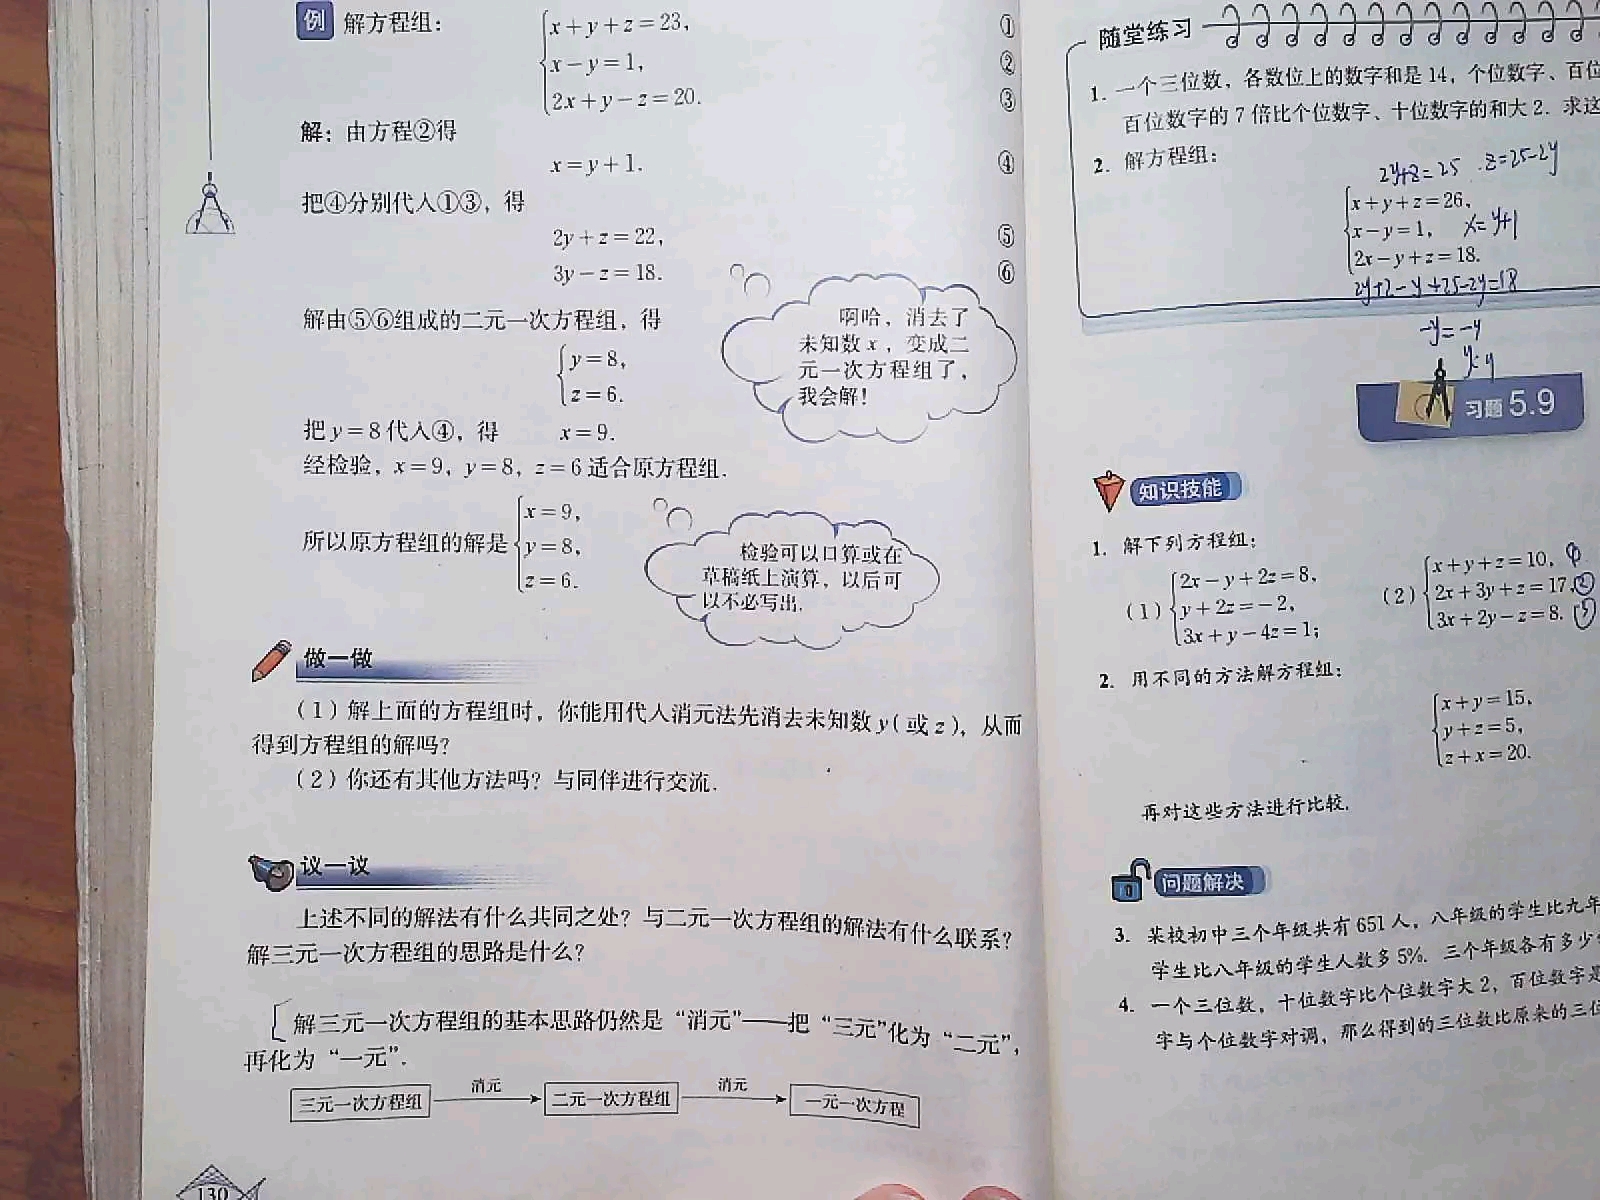 例 解方程组：
x+y+z=23, ①
x-y=1, ②
2x+y-z=20. ③
解：由方程②得
x=y+1. ④
把④分别代入①③，得
2y+z=22, ⑤
3y-z=18. ⑥
解由⑤⑥组成的二元一次方程组，得
y=8,
z=6.
啊哈，消去了
未知数x，变成二
元一次方程组了，
我会解！
把y=8代入④，得 x=9.
经检验，x=9，y=8，z=6适合原方程组.
所以原方程组的解是
x=9,
y=8,
z=6.
检验可以口算或在
草稿纸上演算，以后可
以不必写出.
做一做
（1）解上面的方程组时，你能用代入消元法先消去未知数y（或z），从而
得到方程组的解吗？
（2）你还有其他方法吗？与同伴进行交流.
议一议
上述不同的解法有什么共同之处？与二元一次方程组的解法有什么联系？
解三元一次方程组的思路是什么？
解三元一次方程组的基本思路仍然是“消元”——把“三元”化为“二元”，
再化为“一元”.
三元一次方程组 消元 二元一次方程组 消元 一元一次方程
130
随堂练习
1. 一个三位数，各数位上的数字和是14，个位数字、百位
百位数字的7倍比个位数字、十位数字的和大2. 求这
2. 解方程组：
2y+z=25 z=25-2y
x+y+z=26,
x-y=1, x=y+1
2x-y+z=18.
2y+2-y+25-2y=18
习题5.9
知识技能
1. 解下列方程组：
（1）
2x-y+2z=8,
y+2z=-2,
3x+y-4z=1;
（2）
x+y+z=10, ①
2x+3y+z=17, ②
3x+2y-z=8. ③
2. 用不同的方法解方程组：
x+y=15,
y+z=5,
z+x=20.
再对这些方法进行比较.
问题解决
3. 某校初中三个年级共有651人，八年级的学生比九年
学生比八年级的学生人数多5%. 三个年级各有多少
4. 一个三位数，十位数字比个位数字大2，百位数字是
字与个位数字对调，那么得到的三位数比原来的三位